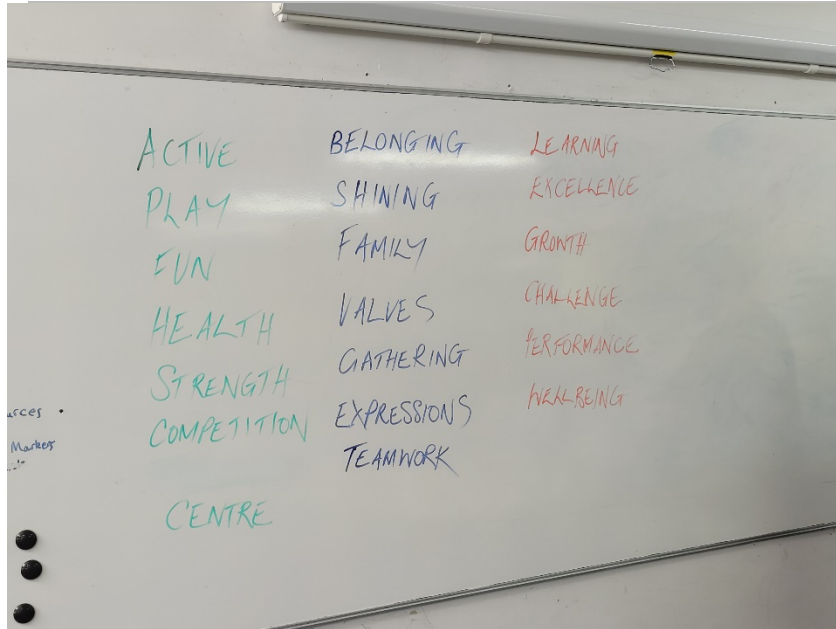 ACTIVE
PLAY
FUN
HEALTH
STRENGTH
COMPETITION
CENTRE
BELONGING
SHINING
FAMILY
VALVES
GATHERING
EXPRESSIONS
TEAMWORK
LEARNING
EXCELLENCE
GROWTH
CHALLENGE
PERFORMANCE
WELLBEING
urces
Markers